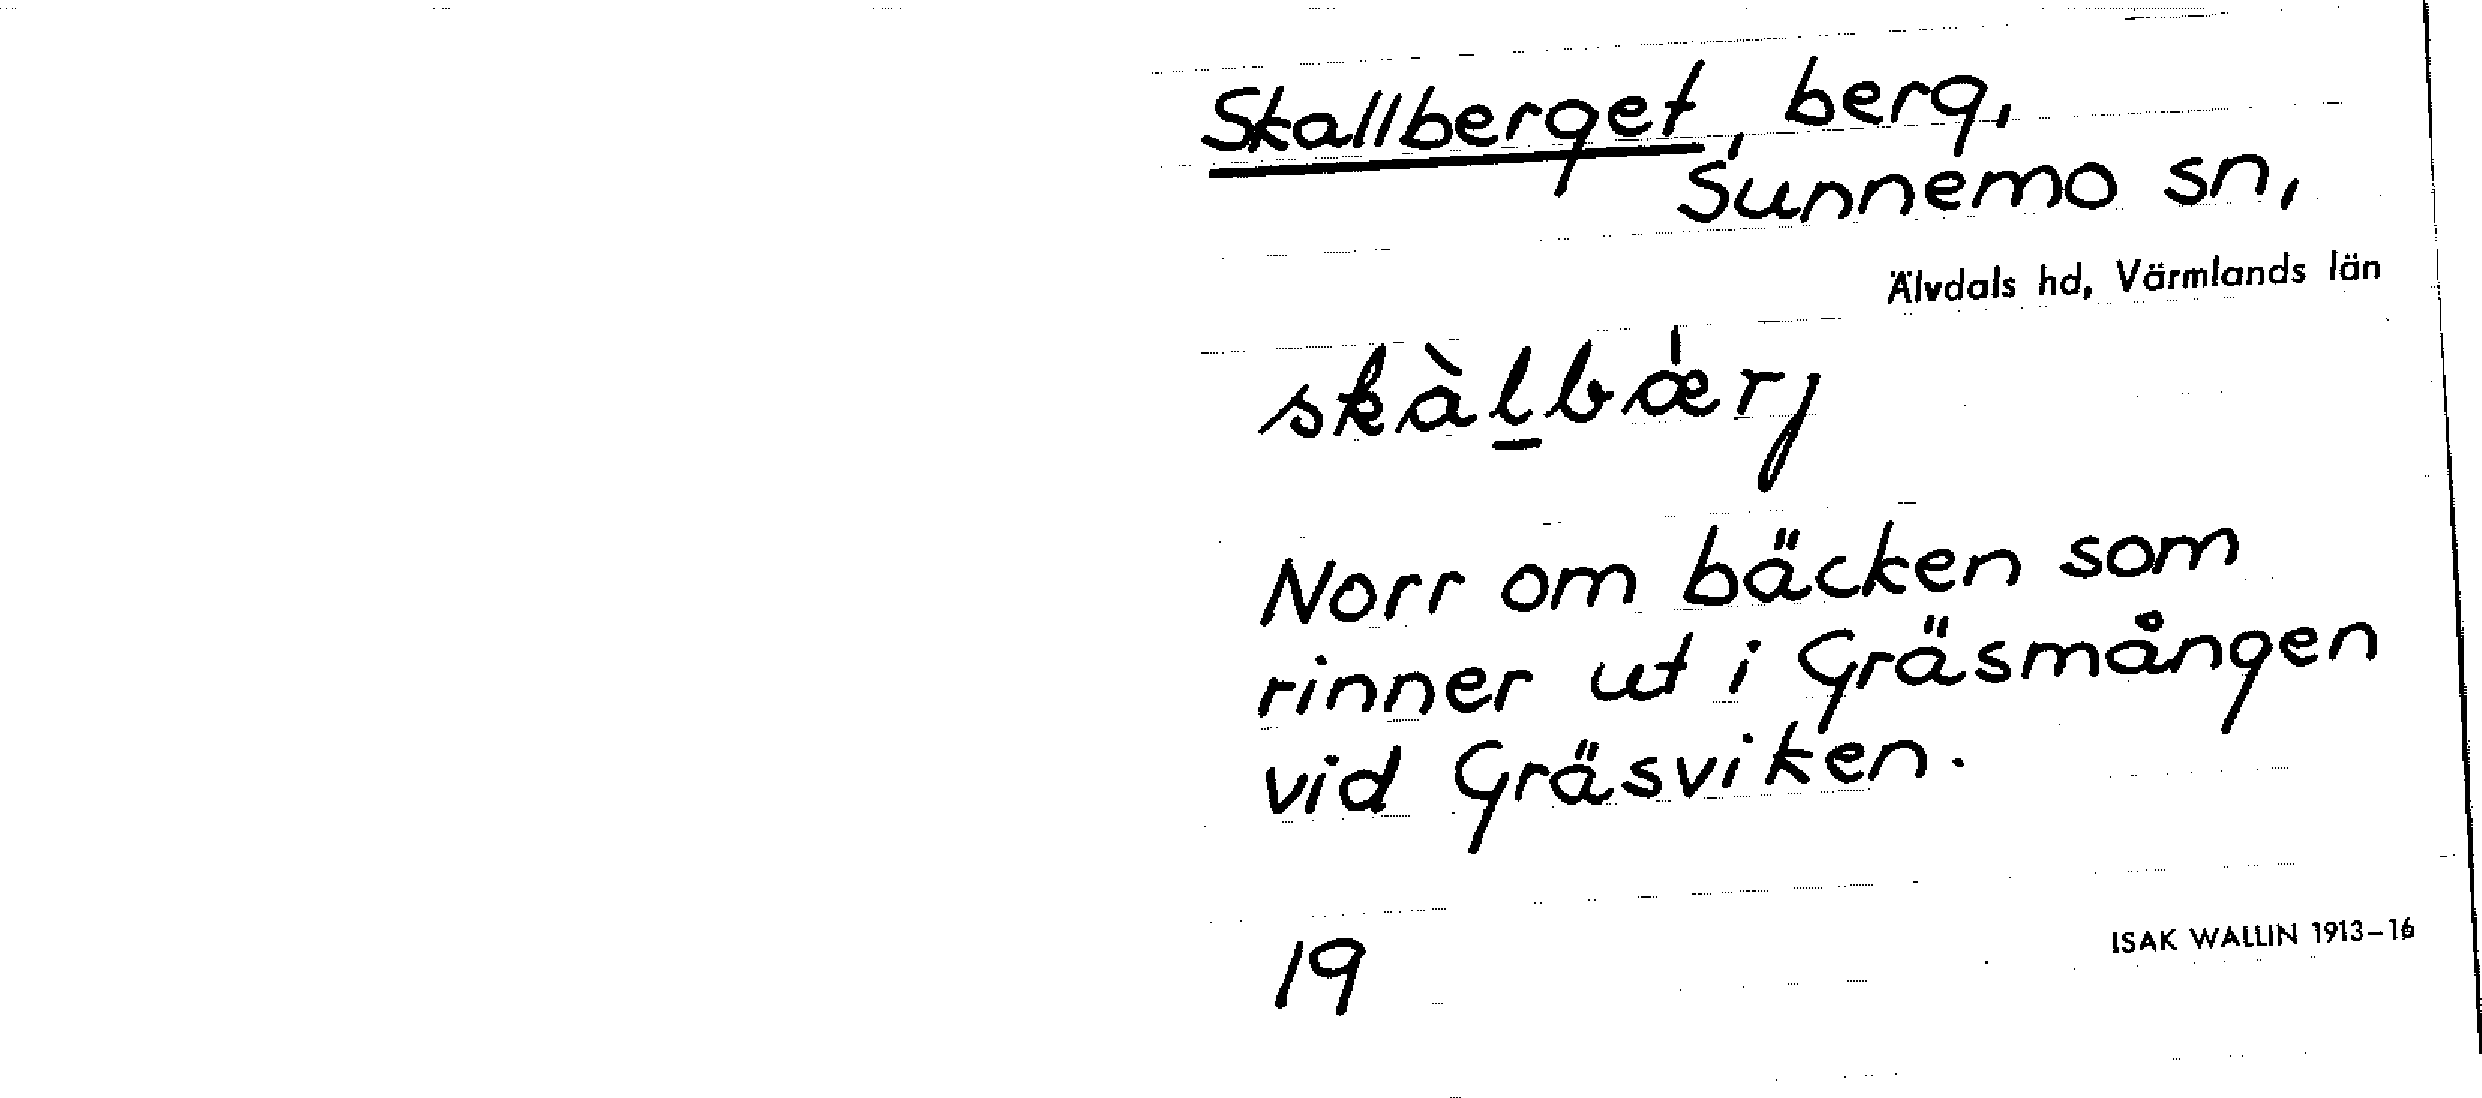 Skallberget, berg,
Sunnemo sn,
Älvdals hd, Värmlands län
skàl̲bæ̍rj
Norr om bäcken som
rinner ut i Gräsmången
vid Gräsviken.
19
ISAK WALLIN 1913–16